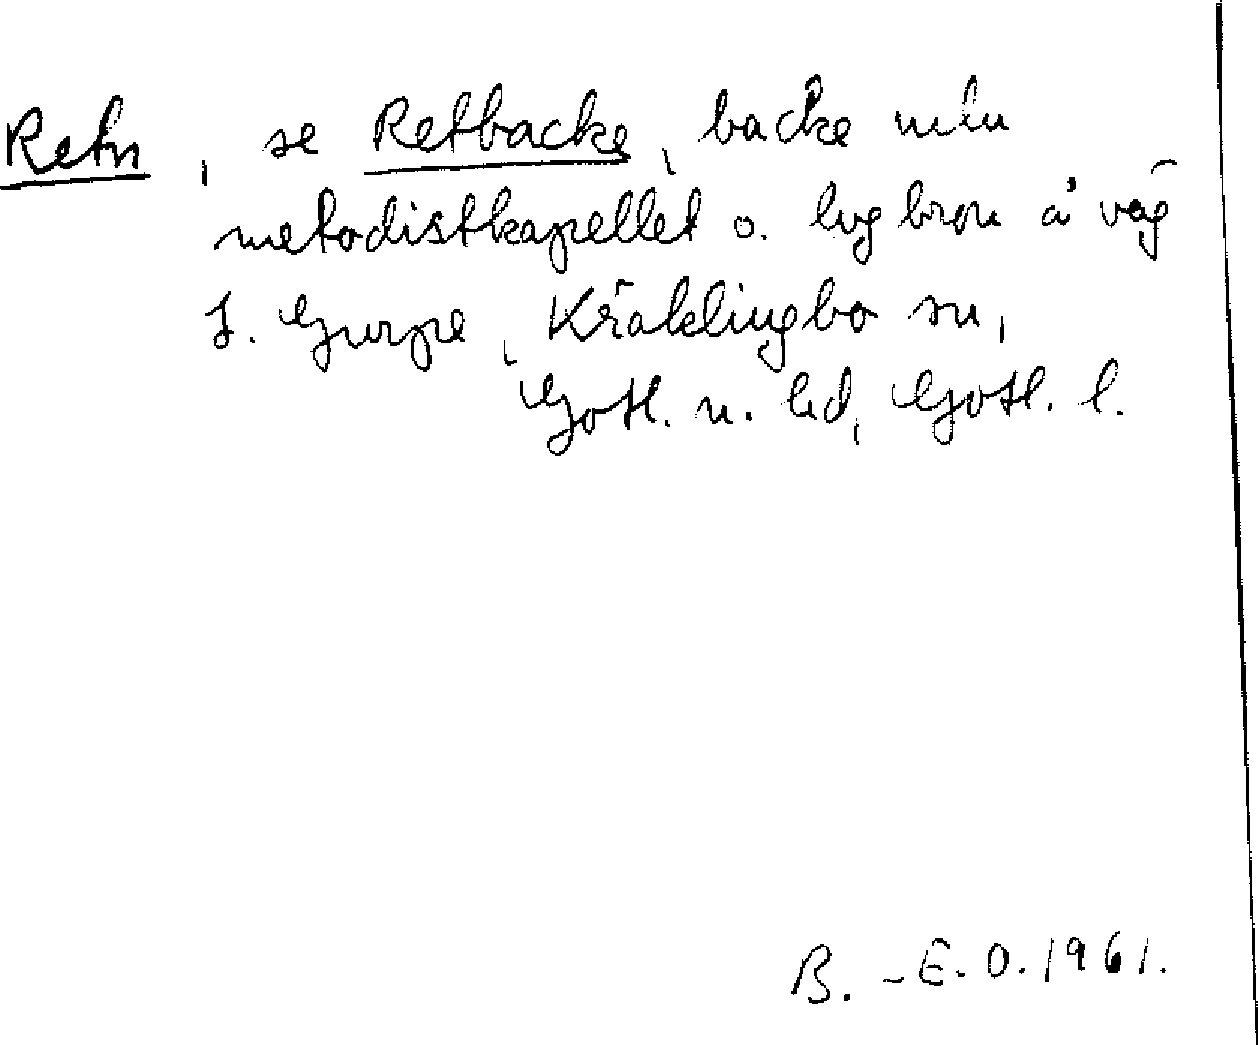 Retn, se Retbacke, backe mln
metodistkapellet o. lvgbron å väg
t. Gurpe, Kräklingbo sn,
Gotl. n. hd, Gotl. l.
B.-E.O. 1961.